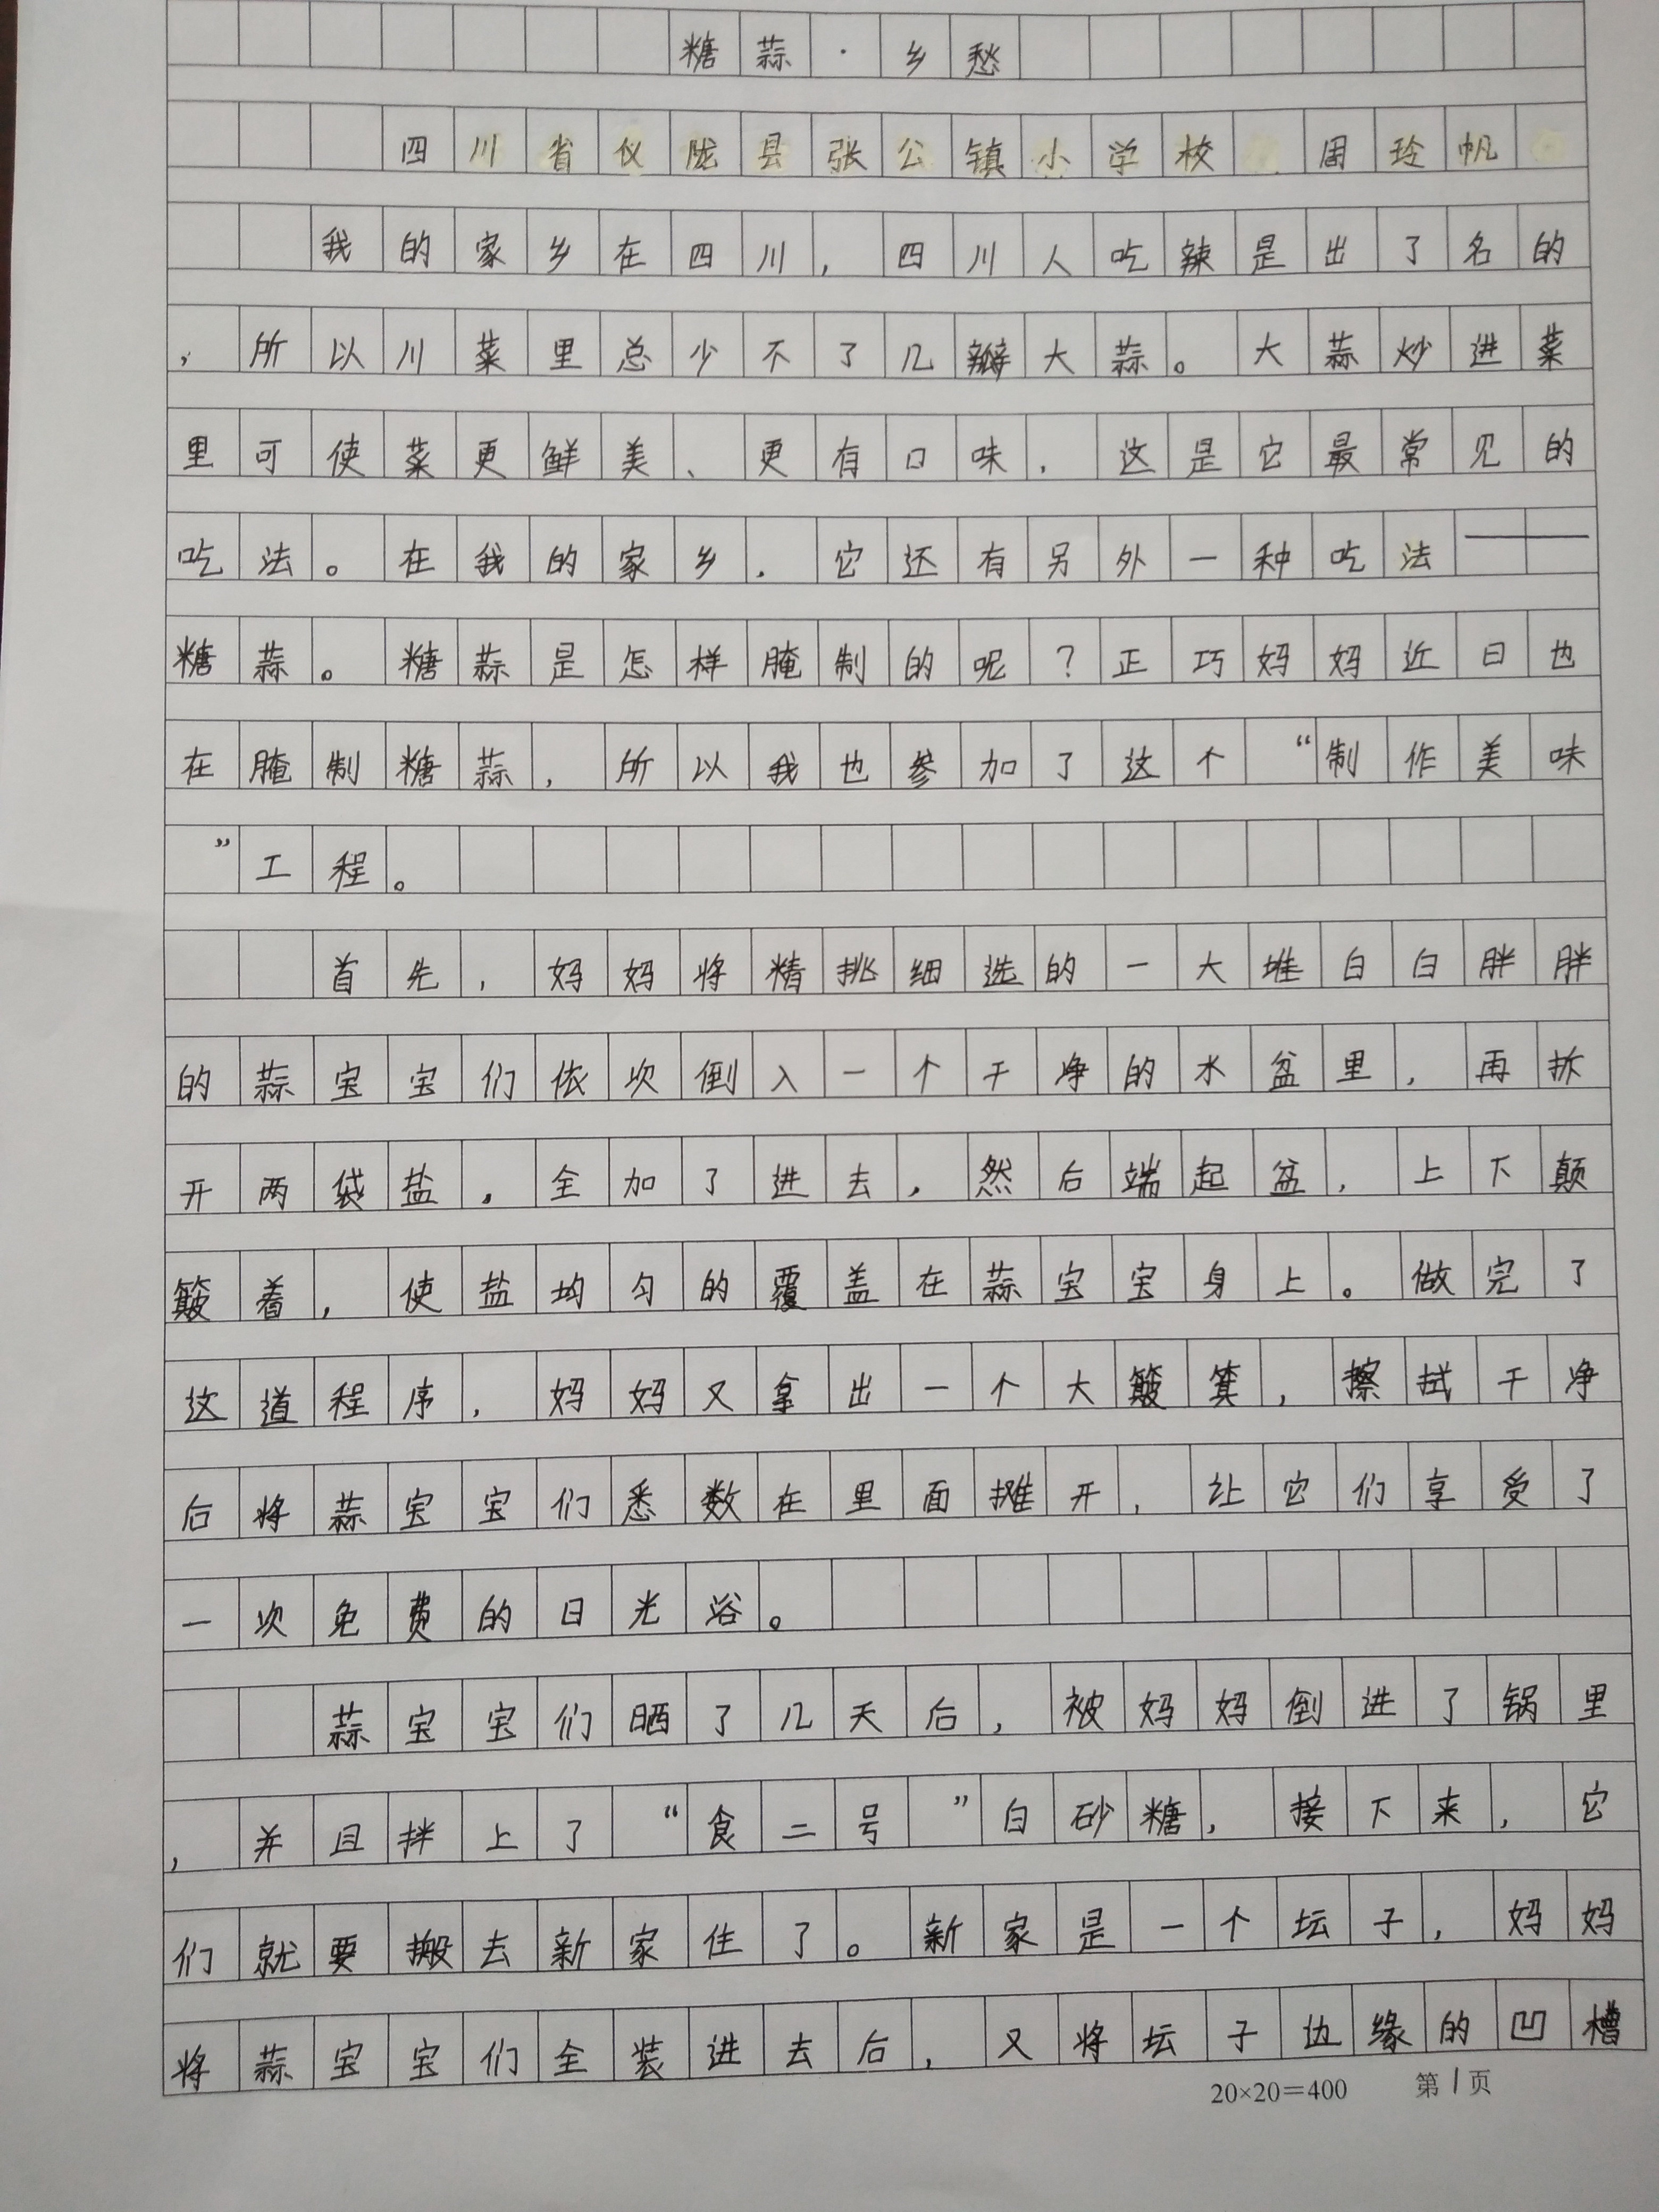 糖蒜·乡愁
四川省仪陇县张公镇小学校 周玲帆
我的家乡在四川，四川人吃辣是出了名的
，所以川菜里总少不了几瓣大蒜。大蒜炒进菜
里可使菜更鲜美、更有口味，这是它最常见的
吃法。在我的家乡，它还有另外一种吃法——
糖蒜。糖蒜是怎样腌制的呢？正巧妈妈近日也
在腌制糖蒜，所以我也参加了这个“制作美味
”工程。
首先，妈妈将精挑细选的一大堆白白胖胖
的蒜宝宝们依次倒入一个干净的水盆里，再拆
开两袋盐，全加了进去，然后端起盆，上下颠
簸着，使盐均匀的覆盖在蒜宝宝身上。做完了
这道程序，妈妈又拿出一个大簸箕，擦拭干净
后将蒜宝宝们悉数在里面摊开，让它们享受了
一次免费的日光浴。
蒜宝宝们晒了几天后，被妈妈倒进了锅里
，并且拌上了“食二号”白砂糖，接下来，它
们就要搬去新家住了。新家是一个坛子，妈妈
将蒜宝宝们全装进去后，又将坛子边缘的凹槽
20×20=400 第1页